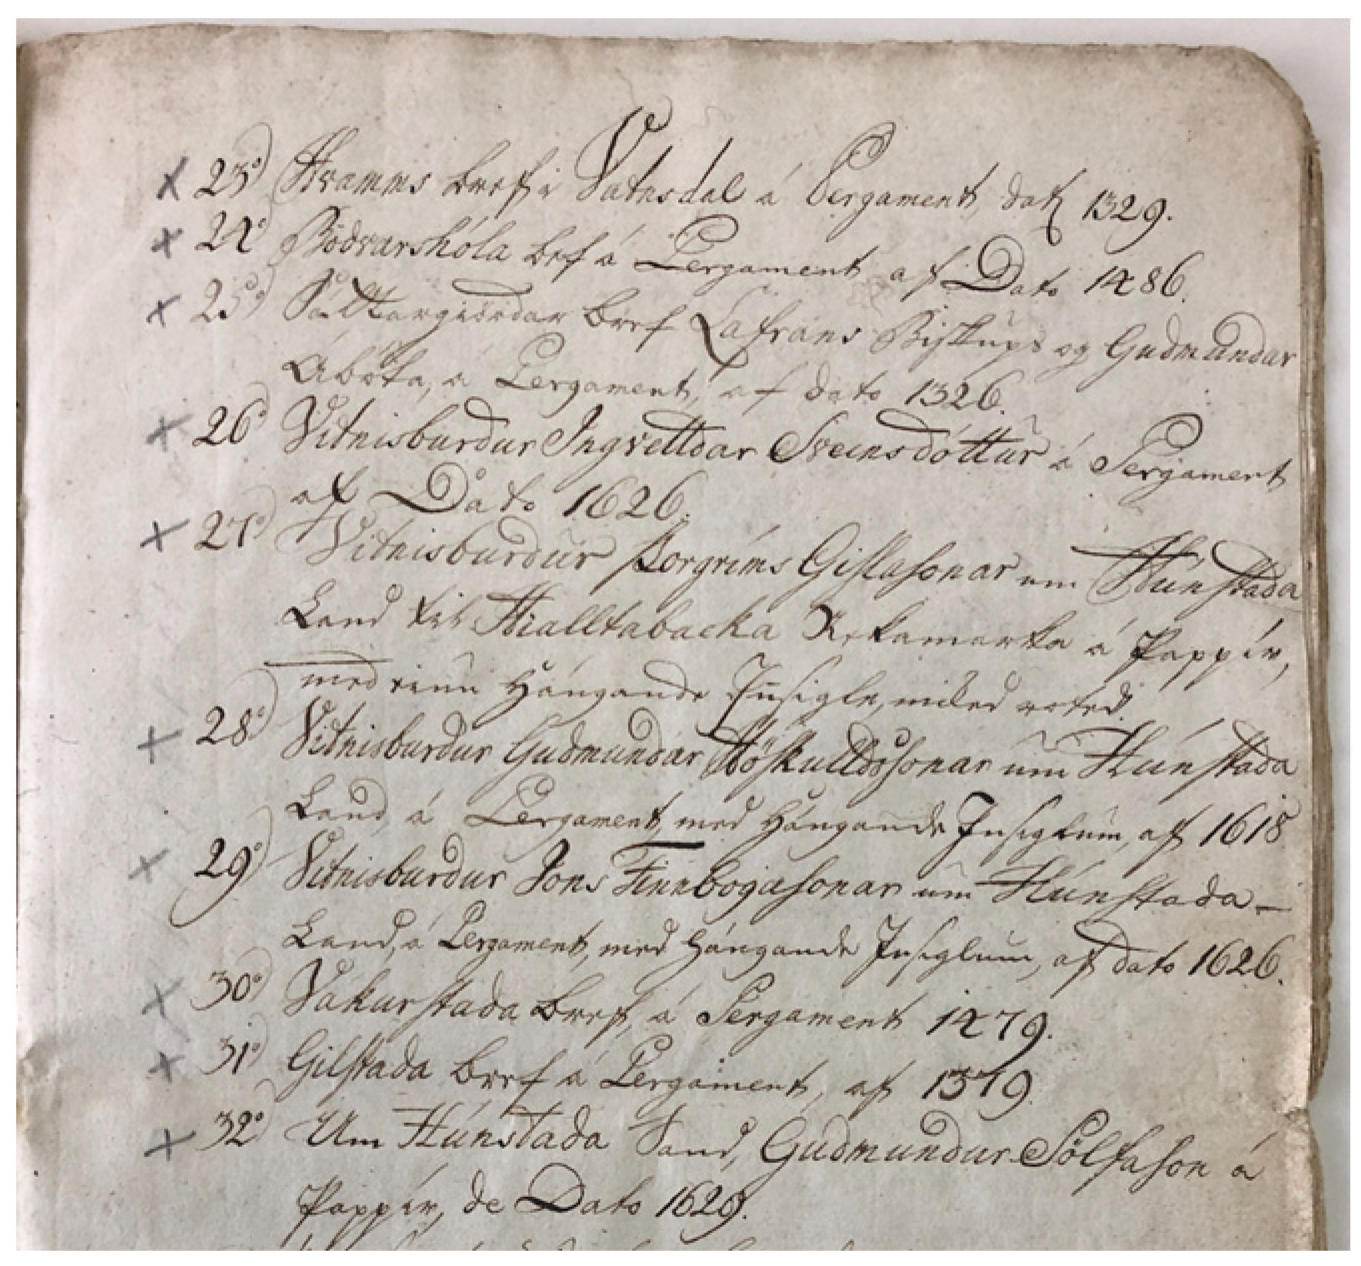 23º) Hvamms bref i Vatnsdal á Pergament, dat 1329.
24º) Bödvarshóla bref á Pergament af Dato 1486.
25º) Sáttargiördar bref Lafrans Biskups og Gudmundar
Ábóta, á Pergament, af dato 1326.
26º) Vitnisburdur Ingvelldar Sveinsdóttur á Pergament
af Dato 1626.
27º) Vitnisburdur Þorgríms Gislasonar um Húnstada
Land til Hialltabacka Rekamarka á Pappír,
med einu Hángande Insigle, miked roted.
28º) Vitnisburdur Gudmundar Höskulldssonar um Húnstada
Land, á Pergament, med Hángande Insiglum, af 1618
29º) Vitnisburdur Jons Finnbogasonar um Húnstada-
Land, á Pergament, med hángande Insiglum, af dato 1626.
30º) Vakurstada bref, á Pergament 1479.
31º) Gilstada bref á Pergament, af 1379
32º) Um Húnstada Land, Gudmundur Sölfason á
Pappír, de Dato 1629.